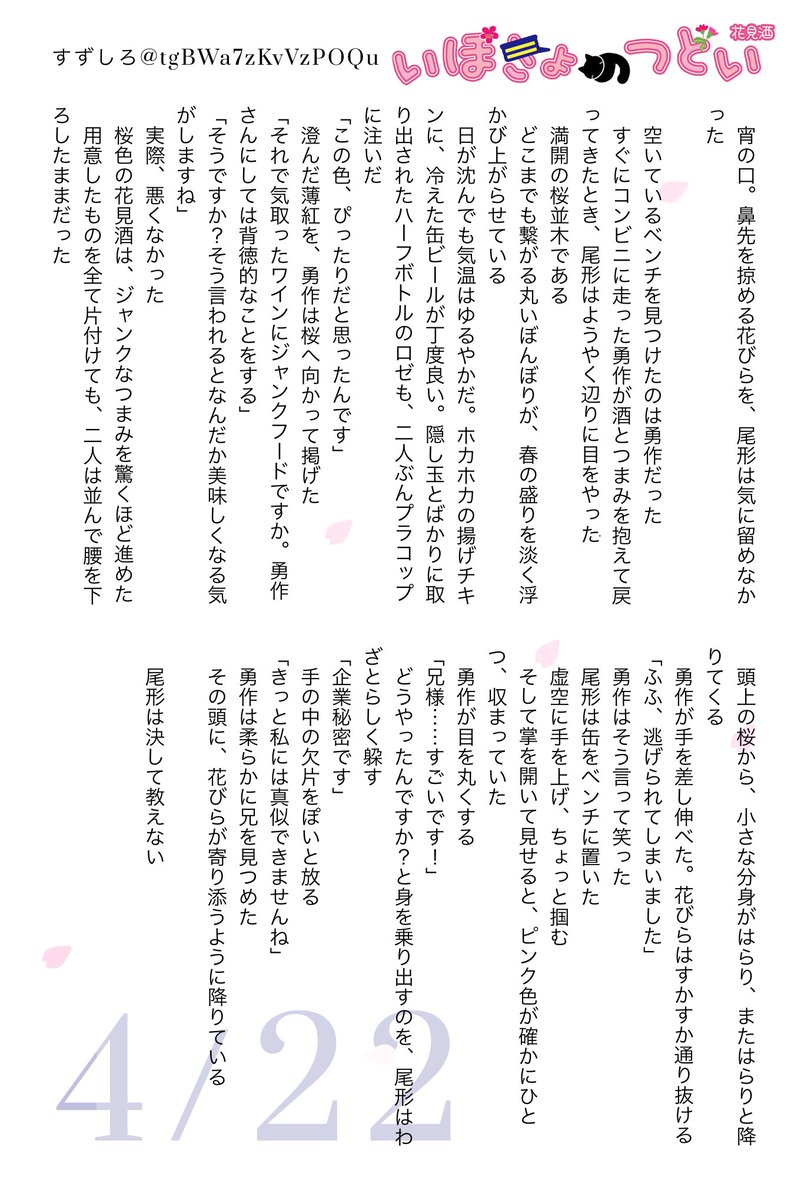 すずしろ@tgBWa7zKvVzPOQu
いぽきょのつどい
花見酒
宵の口。鼻先を掠める花びらを、尾形は気に留めなか
った
空いているベンチを見つけたのは勇作だった
すぐにコンビニに走った勇作が酒とつまみを抱えて戻
ってきたとき、尾形はようやく辺りに目をやった
満開の桜並木である
どこまでも繋がる丸いぼんぼりが、春の盛りを淡く浮
かび上がらせている
日が沈んでも気温はゆるやかだ。ホカホカの揚げチキ
ンに、冷えた缶ビールが丁度良い。隠し玉とばかりに取
り出されたハーフボトルのロゼも、二人ぶんプラコップ
に注いだ
「この色、ぴったりだと思ったんです」
澄んだ薄紅を、勇作は桜へ向かって掲げた
「それで気取ったワインにジャンクフードですか。勇作
さんにしては背徳的なことをする」
「そうですか？そう言われるとなんだか美味しくなる気
がしますね」
実際、悪くなかった
桜色の花見酒は、ジャンクなつまみを驚くほど進めた
用意したものを全て片付けても、二人は並んで腰を下
ろしたままだった
頭上の桜から、小さな分身がはらり、またはらりと降
りてくる
勇作が手を差し伸べた。花びらはすかすか通り抜ける
「ふふ、逃げられてしまいました」
勇作はそう言って笑った
尾形は缶をベンチに置いた
虚空に手を上げ、ちょっと掴む
そして掌を開いて見せると、ピンク色が確かにひと
つ、収まっていた
勇作が目を丸くする
「兄様……すごいです！」
どうやったんですか？と身を乗り出すのを、尾形はわ
ざとらしく躱す
「企業秘密です」
手の中の欠片をぽいと放る
「きっと私には真似できませんね」
勇作は柔らかに兄を見つめた
その頭に、花びらが寄り添うように降りている
尾形は決して教えない
4/22